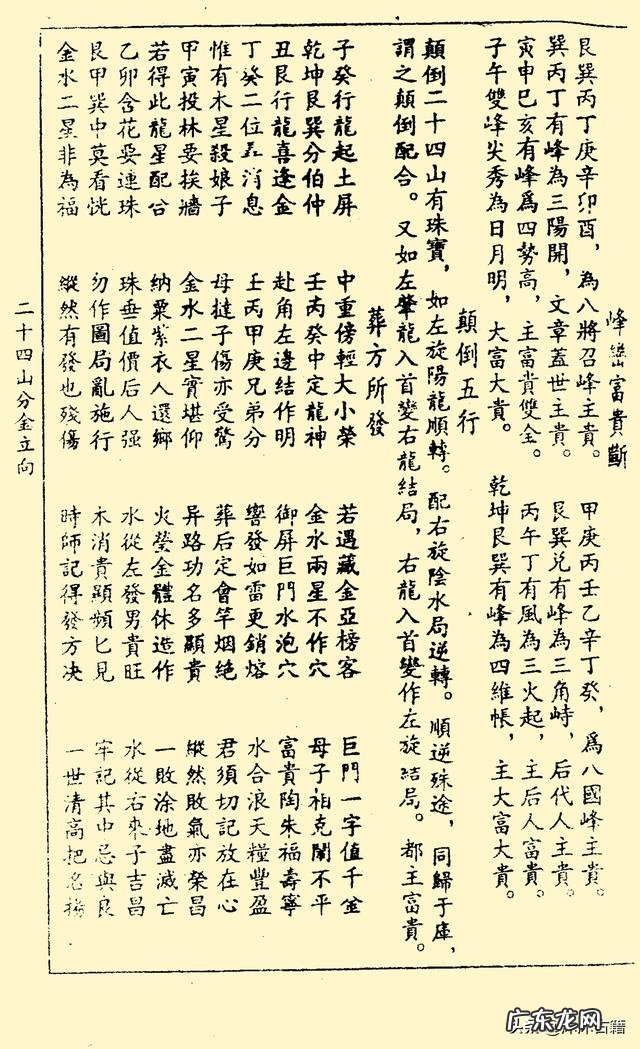 峰巒富貴斷
艮巽丙丁庚辛卯酉，為八將召峰主貴。 甲庚丙壬乙辛丁癸，爲八國峰主貴。
巽丙丁有峰為三陽開，文章蓋世主貴。 艮巽兑有峰為三角峙，后代人主貴。
寅申巳亥有峰爲四勢高，主富貴雙全。 丙午丁有風為三火起，主后人富貴。
子午雙峰尖秀為日月明，大富大貴。 乾坤艮巽有峰為四維帳，主大富大貴。
顛倒五行
顛倒二十四山有珠寶，如左旋陽龍順轉。配右旋陰水局逆轉。順逆殊途，同歸于庫，
謂之顛倒配合。又如左肇龍入首變右龍結局，右龍入首變作左旋結局。都主富貴。
葬方所發
子癸行龍起土屏 中重傍輕大小榮 若遇藏金亞榜客 巨門一字值千金
乾坤艮巽分伯仲 壬丙癸中定龍神 金水兩星不作穴 母子相克鬧不平
丑艮行龍喜逢金 赴角左邊結作明 御屏巨門水泡穴 富貴陶朱福壽寧
丁癸二位並消息 壬丙甲庚兄弟分 響發如雷更銷熔 水合浪天糧豐盈
惟有木星殺娘子 母撻子傷亦受驚 葬后定會竿烟絶 君須切記放在心
甲寅投林要挨牆 金水二星實堪仰 异路功名多顯貴 縱然敗氣亦榮昌
若得此龍星配合 納粟紫衣人還鄉 火瑩金體休造作 一敗涂地盡滅亡
乙卯含花要連珠 珠垂值價后人强 水從左發男貴旺 水從右來子吉昌
艮甲巽中莫看恍 勿作圖局亂施行 木消貴顯頻匕見 牢記其中忌與良
金水二星非為福 縱然有發也殘傷 時師記得發方决 一世清高把名揚
二十四山分金立向
广东龙网